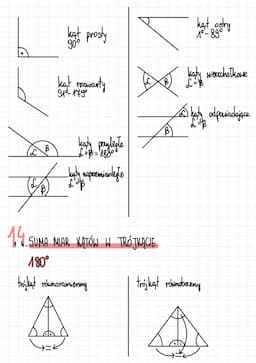 kąt prosty
90°
kąt ostry
1°-89°
kąt rozwarty
91°-179°
kąty wierzchołkowe
α=β
α β
kąty przyległe
α+β=180°
α β
kąty odpowiadające
α=β
α
β
kąty naprzemianległe
α=β
α β
1.4. SUMA MIAR KĄTÓW W TRÓJKĄCIE
180°
trójkąt równoramienny
trójkąt równoboczny